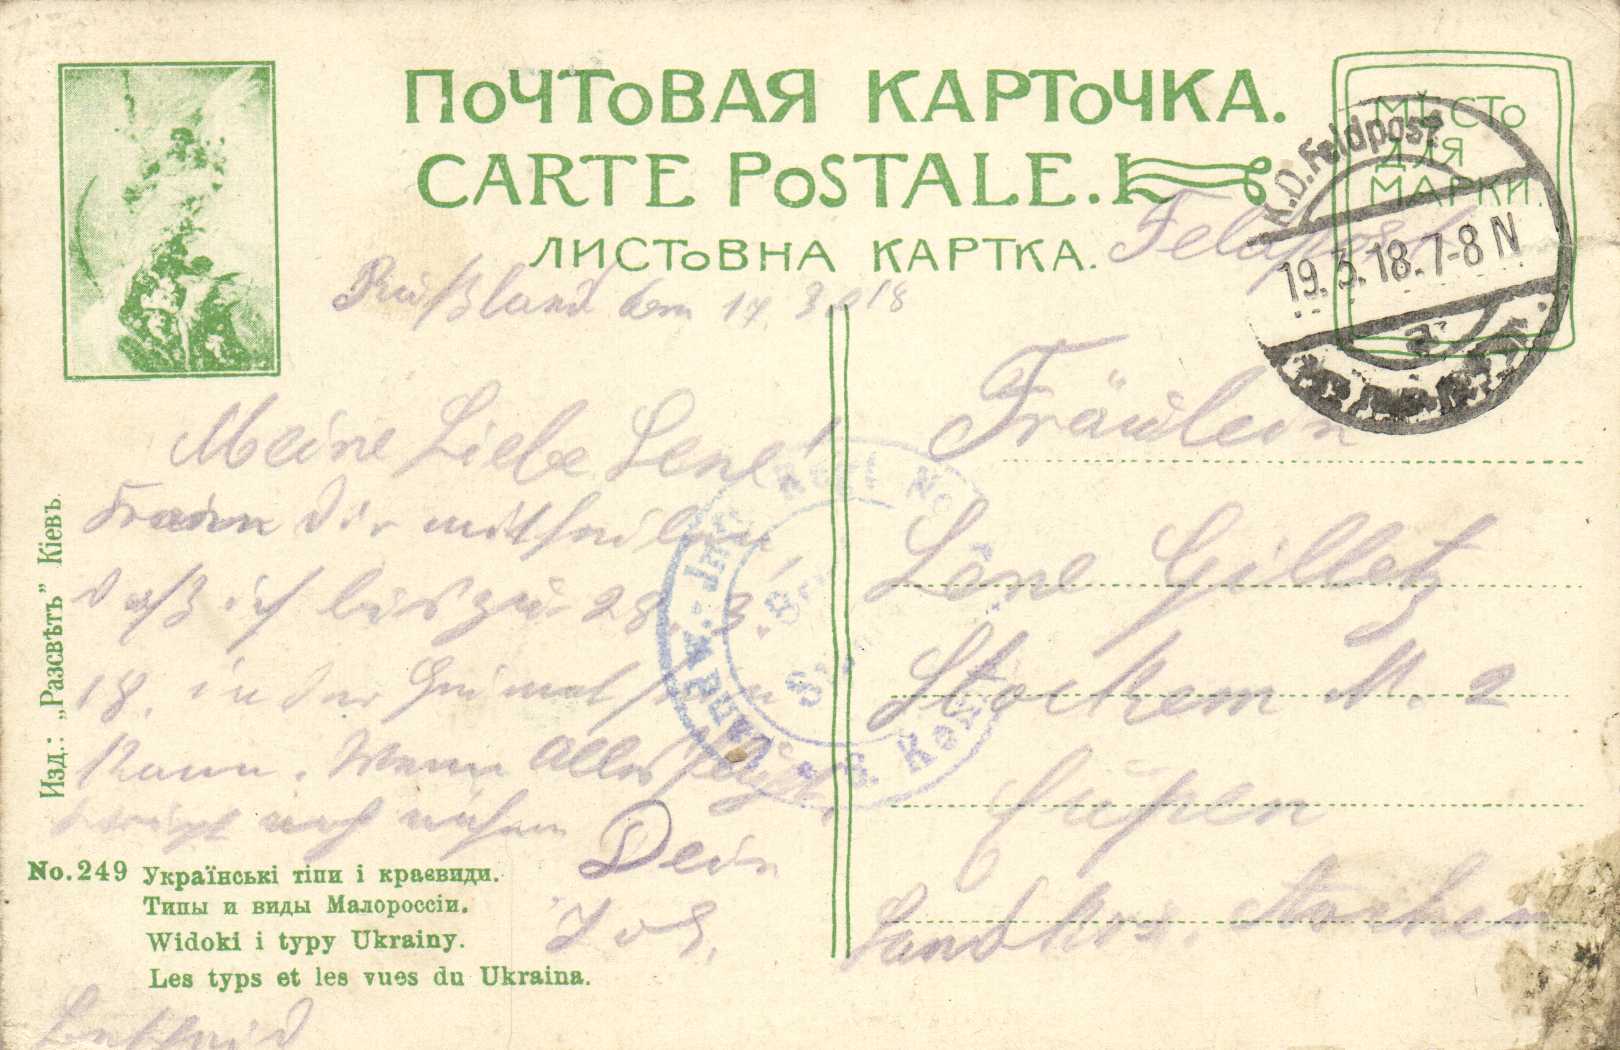 ПОЧТОВАЯ КАРТОЧКА.
CARTE POSTALE.
ЛИСТОВНА КАРТКА.
МѢСТО
ДЛЯ
МАРКИ.
K.D. Feldpost
19.3.18.7-8 N
Feldpost
Rußland den 17 3. 18
Meine Liebe Lene!
Dir mittheilen,
daß ich bis zu 28. 3.
18. in der Heimat sein
kann. Wenn Alles
Dein
Jos.
Fräulein
Lène Gilletz
Stockem N. 2
Eupen
Landkrs. Aachen
Изд.: „Разсвѣтъ” Кіевъ.
No. 249 Українські тіпи і краєвиди.
Типы и виды Малороссіи.
Widoki i typy Ukrainy.
Les typs et les vues du Ukraina.